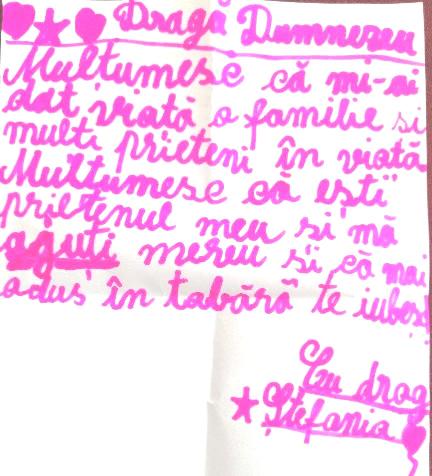 Dragă Dumnezeu
Multumesc că mi-ai
dat viată o familie si
multi prieteni în viată
Multumesc că ești
prietenul meu si mă
ajuți mereu si că m-ai
adus în tabără te iubesc!
Cu drag
Ștefania